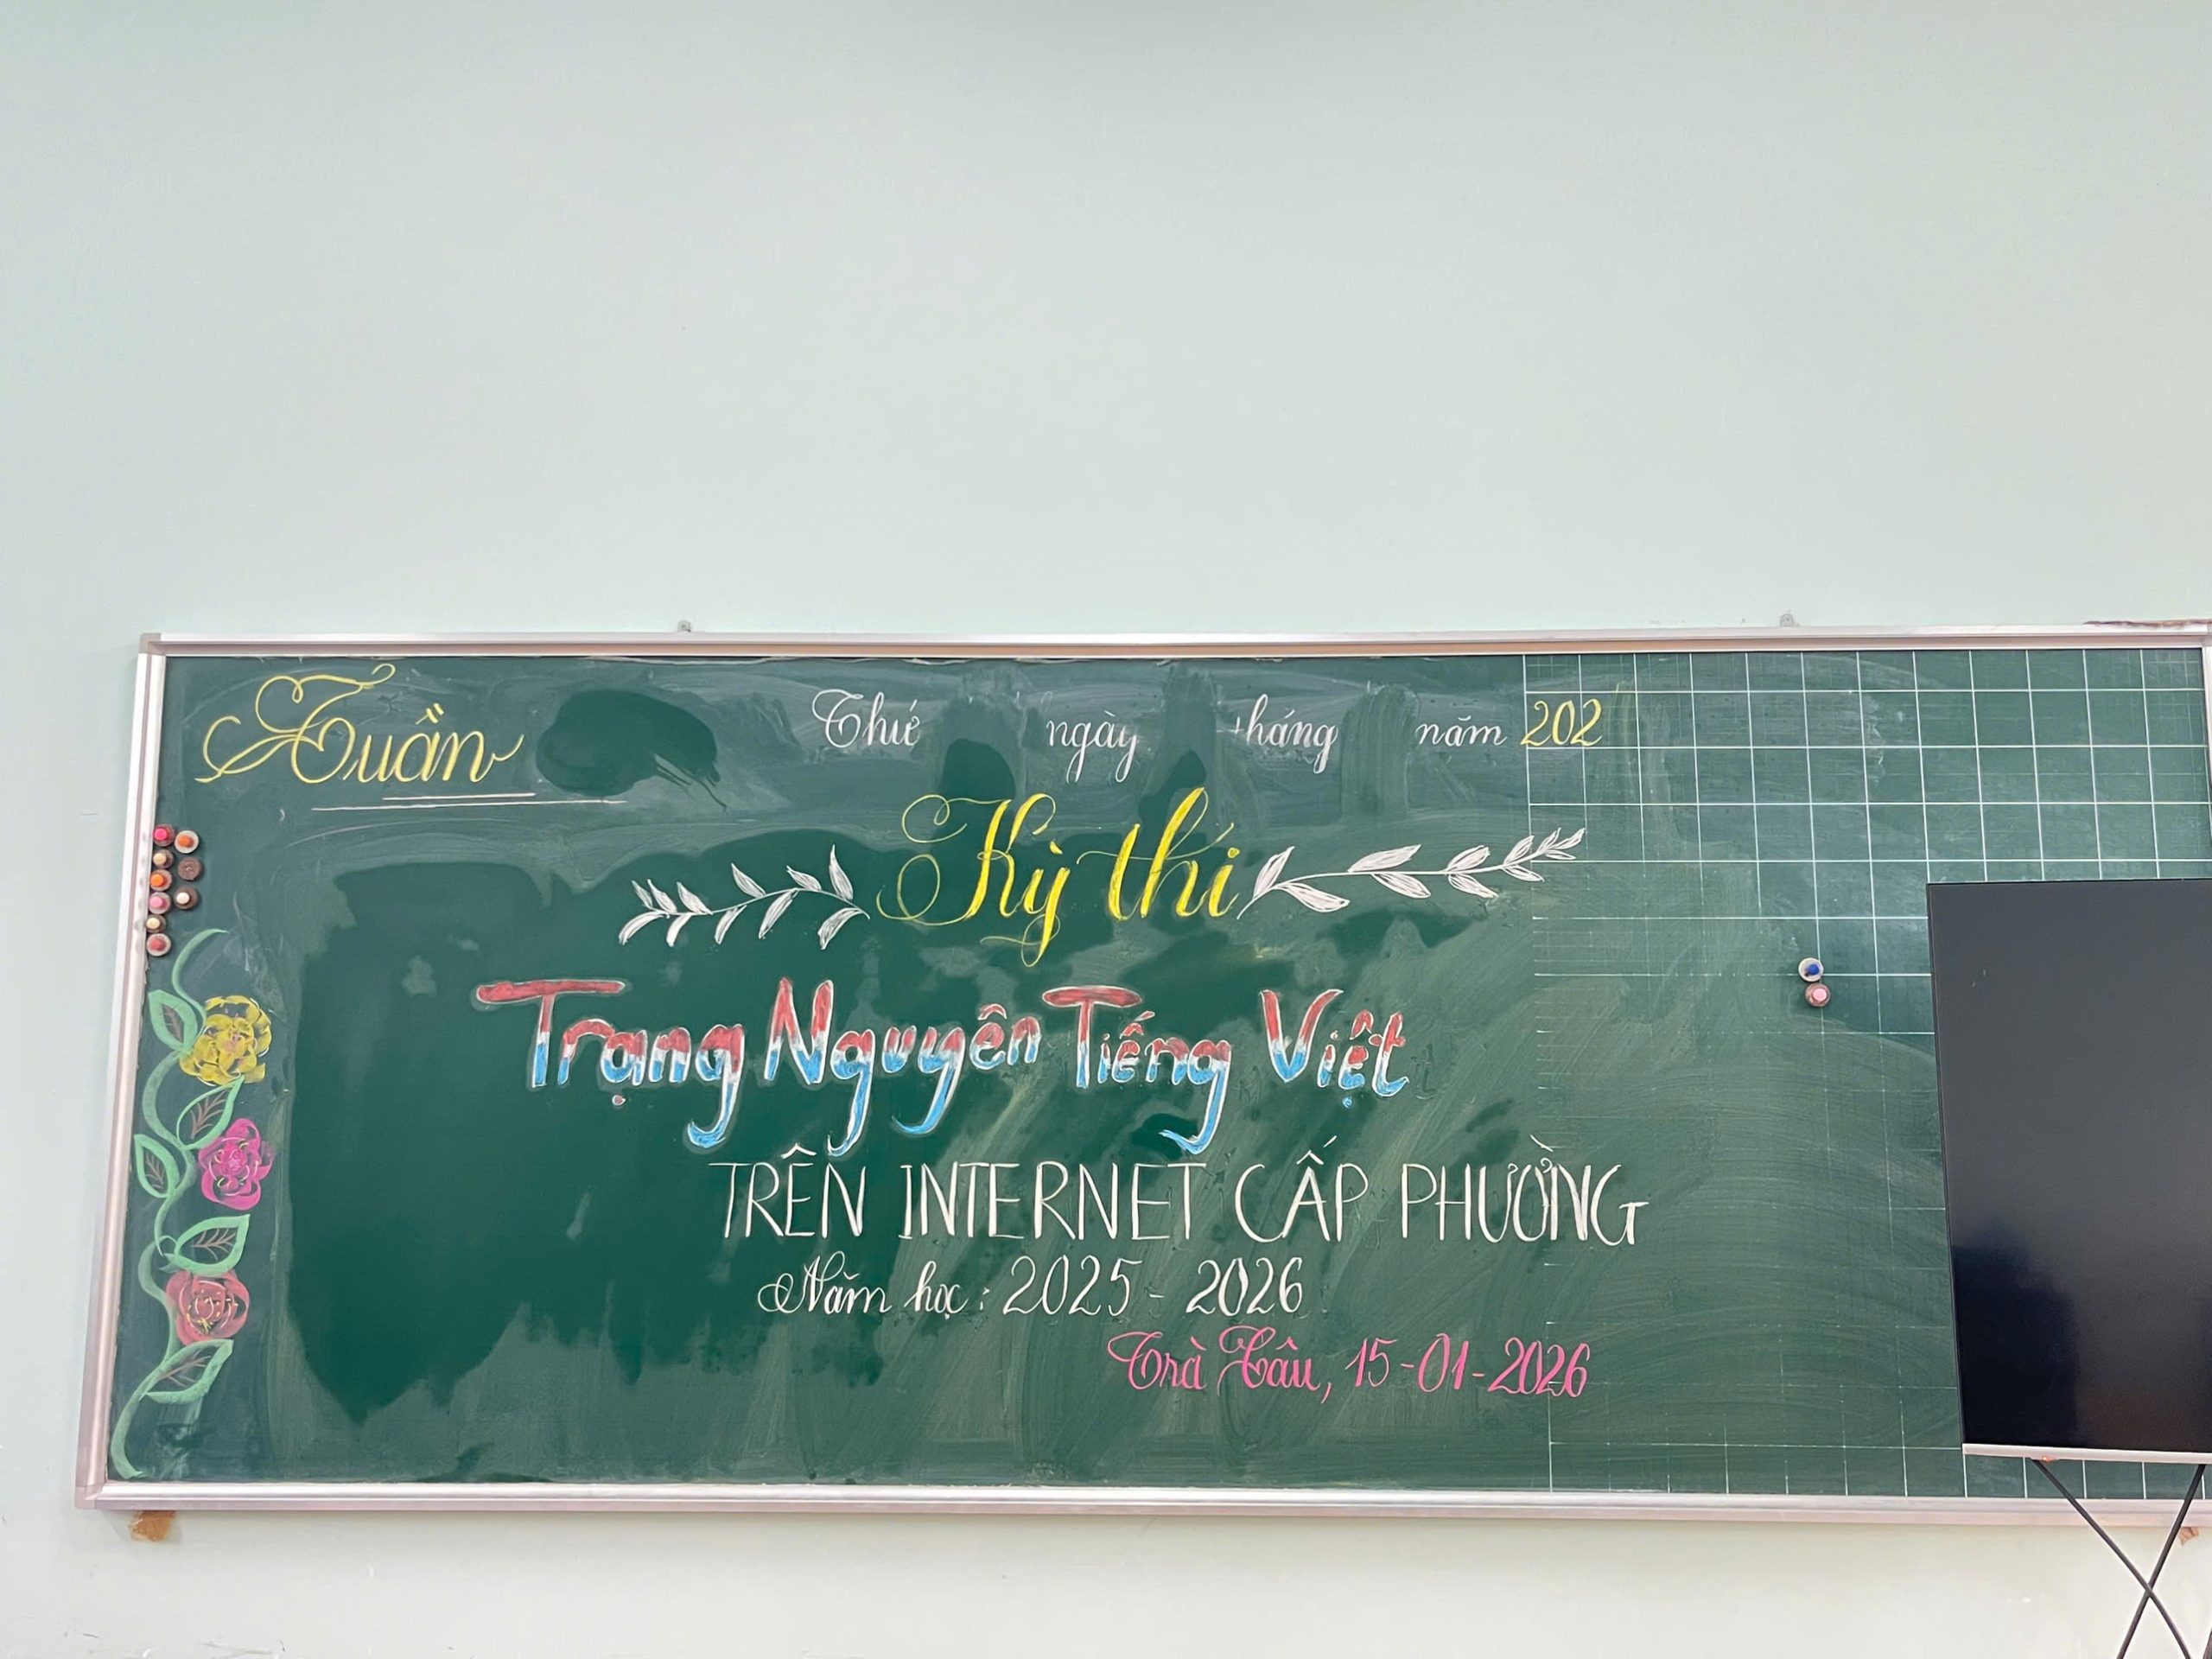 Tuần
Thứ ngày tháng năm 202
Kỳ thi
Trạng Nguyên Tiếng Việt
TRÊN INTERNET CẤP PHƯỜNG
Năm học: 2025 - 2026
Trà Tâu, 15-01-2026